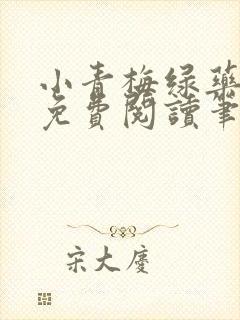 小青梅绿药
免費閱讀筆
宋大慶